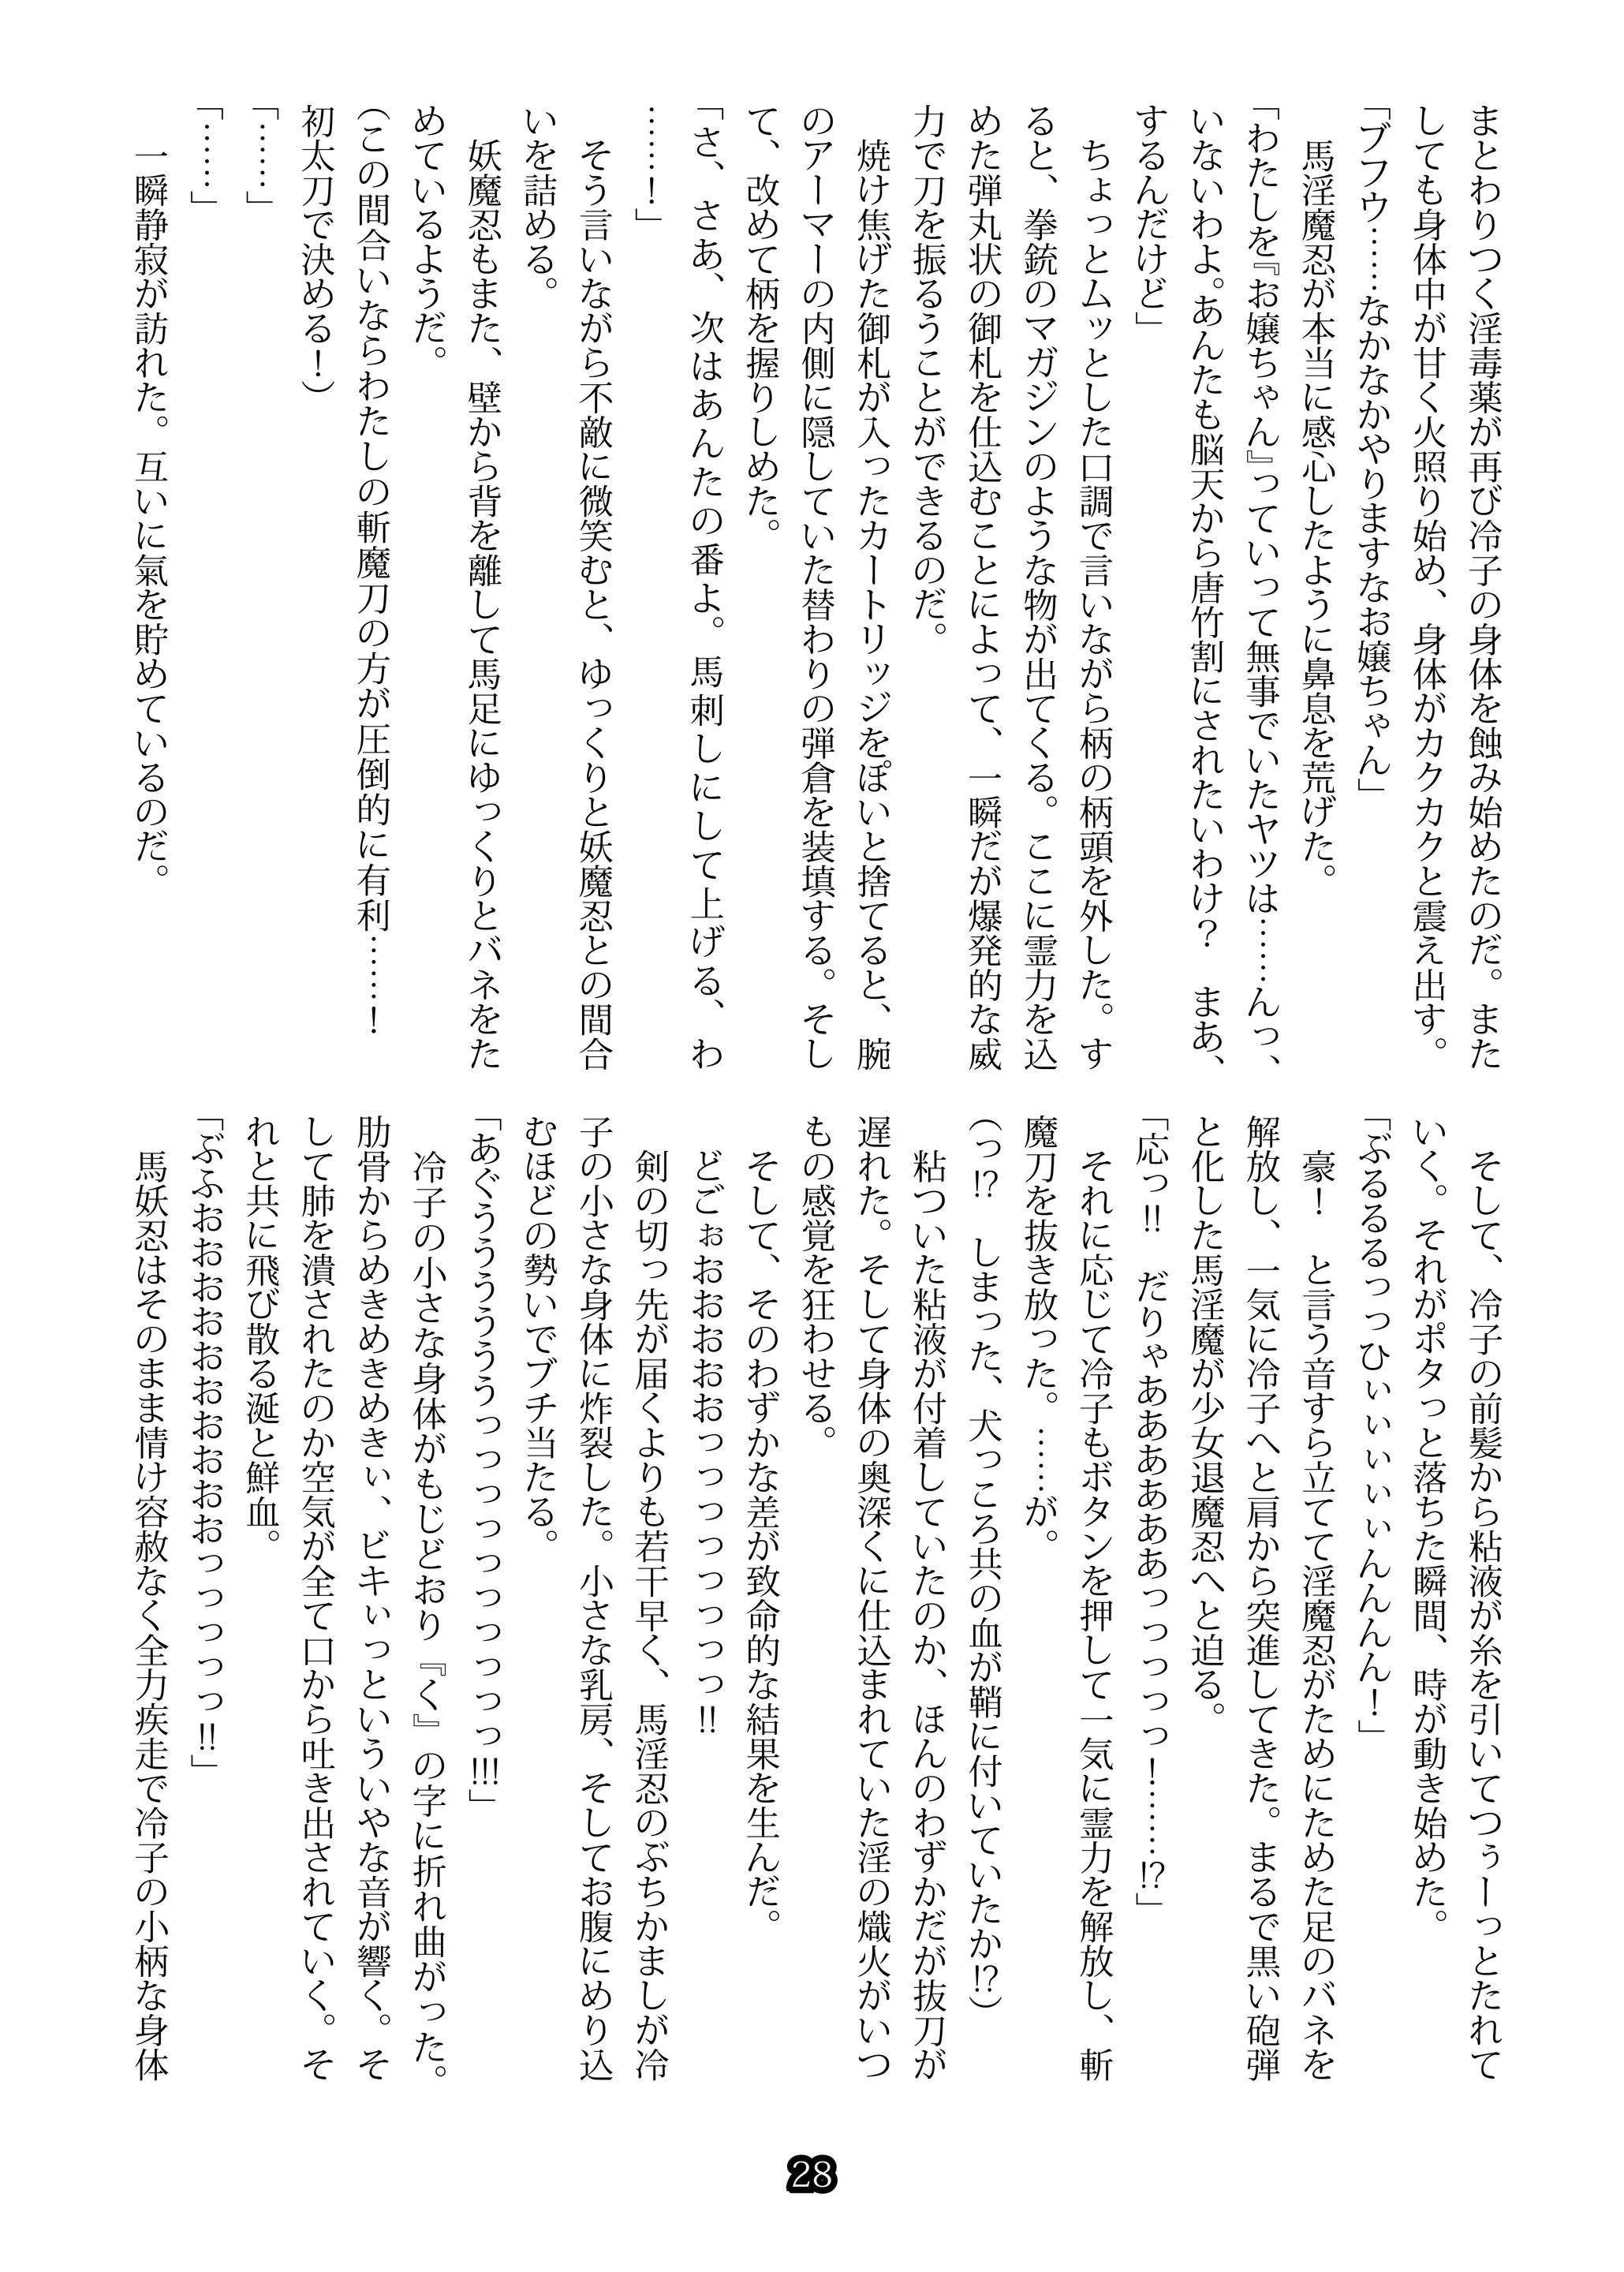 まとわりつく淫毒薬が再び冷子の身体を蝕み始めたのだ。また
しても身体中が甘く火照り始め、身体がカクカクと震え出す。
「ブフウ……なかなかやりますなお嬢ちゃん」
　馬淫魔忍が本当に感心したように鼻息を荒げた。
「わたしを『お嬢ちゃん』っていって無事でいたヤツは……んっ、
いないわよ。あんたも脳天から唐竹割にされたいわけ？　まあ、
するんだけど」
　ちょっとムッとした口調で言いながら柄の柄頭を外した。す
ると、拳銃のマガジンのような物が出てくる。ここに霊力を込
めた弾丸状の御札を仕込むことによって、一瞬だが爆発的な威
力で刀を振るうことができるのだ。
　焼け焦げた御札が入ったカートリッジをぽいと捨てると、腕
のアーマーの内側に隠していた替わりの弾倉を装填する。そし
て、改めて柄を握りしめた。
「さ、さあ、次はあんたの番よ。馬刺しにして上げる、わ
……！」
　そう言いながら不敵に微笑むと、ゆっくりと妖魔忍との間合
いを詰める。
　妖魔忍もまた、壁から背を離して馬足にゆっくりとバネをた
めているようだ。
（この間合いならわたしの斬魔刀の方が圧倒的に有利……！
初太刀で決める！）
「……」
「……」
　一瞬静寂が訪れた。互いに氣を貯めているのだ。
　そして、冷子の前髪から粘液が糸を引いてつぅーっとたれて
いく。それがポタっと落ちた瞬間、時が動き始めた。
「ぶるるるっっひぃぃぃぃぃんんんん！」
　豪！　と言う音すら立てて淫魔忍がためにためた足のバネを
解放し、一気に冷子へと肩から突進してきた。まるで黒い砲弾
と化した馬淫魔が少女退魔忍へと迫る。
「応っ‼　だりゃああああああっっっっっ！……⁉」
　それに応じて冷子もボタンを押して一気に霊力を解放し、斬
魔刀を抜き放った。……が。
（っ⁉　しまった、犬っころ共の血が鞘に付いていたか⁉）
　粘ついた粘液が付着していたのか、ほんのわずかだが抜刀が
遅れた。そして身体の奥深くに仕込まれていた淫の熾火がいつ
もの感覚を狂わせる。
　そして、そのわずかな差が致命的な結果を生んだ。
　どごぉおおおおおっっっっっっっっ‼
　剣の切っ先が届くよりも若干早く、馬淫忍のぶちかましが冷
子の小さな身体に炸裂した。小さな乳房、そしてお腹にめり込
むほどの勢いでブチ当たる。
「あぐうううううううっっっっっっっっっっ!!!」
　冷子の小さな身体がもじどおり『く』の字に折れ曲がった。
肋骨からめきめきめきぃ、ビキぃっといういやな音が響く。そ
して肺を潰されたのか空気が全て口から吐き出されていく。そ
れと共に飛び散る涎と鮮血。
「ぶふおおおおおおおおおおっっっっっ‼」
　馬妖忍はそのまま情け容赦なく全力疾走で冷子の小柄な身体
28